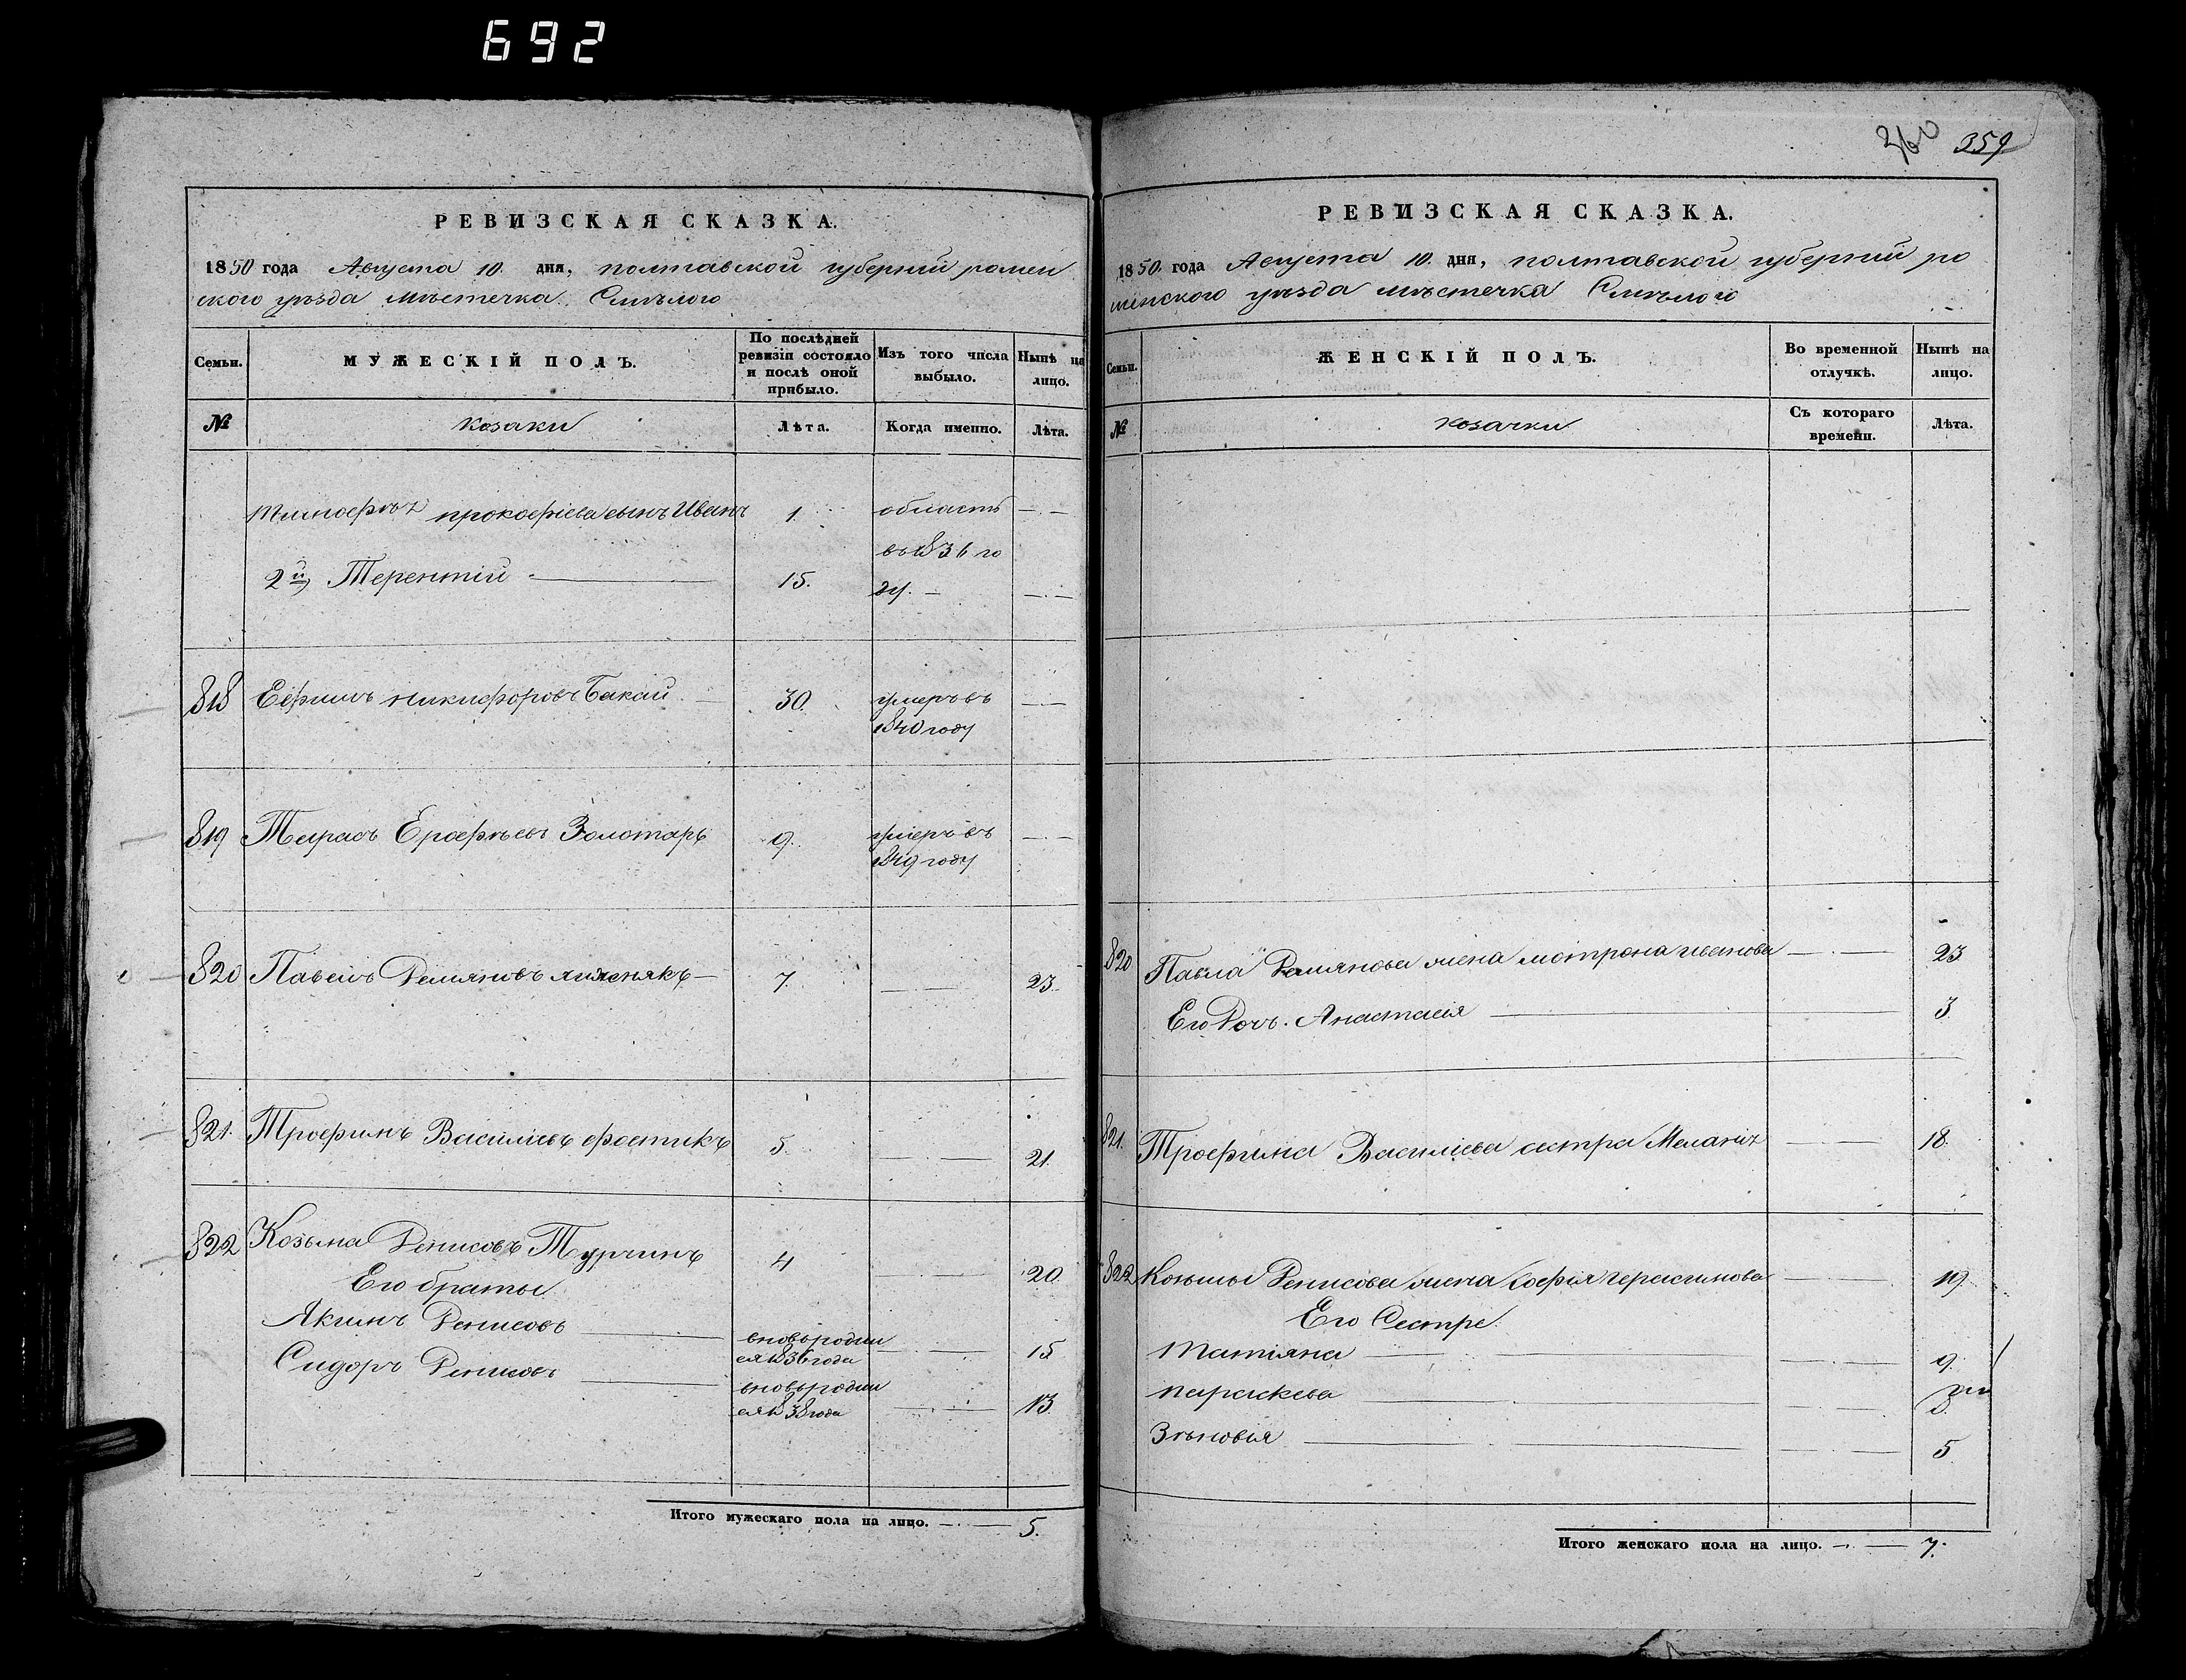 692
РЕВИЗСКАЯ СКАЗКА.
1850 года Августа 10. дня, полтавской губерній ромен
ского уѣзда мѣстечка Смѣлого
Семьи.
МУЖЕСКІЙ ПОЛЪ.
По послѣдней ревизіи состояло и послѣ оной прибыло.
Изъ того числа выбыло.
Нынѣ на лицо.
№
козаки
Лѣта.
Когда именно.
Лѣта.
Тимофѣя прокофіева сынъ Иванъ 1. область
въ 1836 го
2й, Терентій 15. ду.
818 Ефимъ никифоровъ Бакай 30. умеръ въ
1840 году
819 Тарасъ Ерофѣевъ Золотарь 9. умеръ въ
1849 году
820 Павелъ Демяновъ 7. 23.
821. Трофимъ Василіевъ фостикъ 5. 21.
822 Козьма Денисовъ Турчинъ 4 20
Его браты
Якимъ Денисовъ вновьродил
ся 1836 года 15
Сидоръ Денисовъ вновьродил
ся 1838 года 13.
Итого мужескаго пола на лицо. 5.
360 359
РЕВИЗСКАЯ СКАЗКА.
1850. года Августа 10. дня, полтавской губерній ро
менского уѣзда мѣстечка Смѣлого
Семьи.
ЖЕНСКІЙ ПОЛЪ.
Во временной отлучкѣ.
Нынѣ на лицо.
№
козачки
Съ котораго времени.
Лѣта.
820 Павла Демянова жена мотрона иванова 23
Его Доч. Анастасія 3.
821. Трофима Василіева сестра Меланія 18.
822 Козьмы Денисова жена Софія герасимова 19
Его Сестре.
Татіяна 9.
параскева 8.
Зѣновія 5.
Итого женскаго пола на лицо. 7.